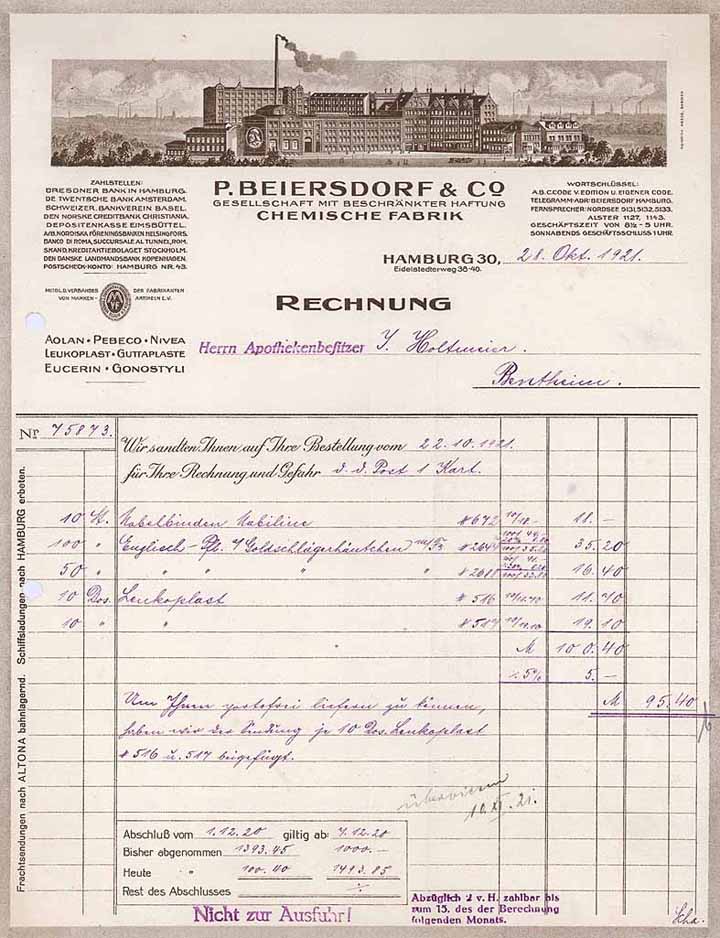 ZAHLSTELLEN:
DRESDNER BANK IN HAMBURG.
DE TWENTSCHE BANK AMSTERDAM.
SCHWEIZER. BANKVEREIN BASEL.
DEN NORSKE CREDITBANK CHRISTIANIA.
DEPOSITENKASSE EIMSBÜTTEL.
A/B. NORDISKA FÖRENINGSBANKEN HELSINGFORS.
BANCO DI ROMA, SUCCURSALE AL TUNNEL, ROM.
SKAND. KREDITAKTIEBOLAGET STOCKHOLM.
DEN DANSKE LANDMANDSBANK KOPENHAGEN.
POSTSCHECK-KONTO: HAMBURG NR. 43.
P. BEIERSDORF & CO
GESELLSCHAFT MIT BESCHRÄNKTER HAFTUNG
CHEMISCHE FABRIK
WORTSCHLÜSSEL:
A.B.C. CODE V. EDITION U. EIGENER CODE.
TELEGRAMM-ADR: BEIERSDORF HAMBURG.
FERNSPRECHER: NORDSEE 9131, 5132, 5133.
ALSTER 1127, 1143.
GESCHÄFTSZEIT VON 8½-5 UHR.
SONNABENDS GESCHÄFTSSCHLUSS 1 UHR.
HAMBURG 30, 28. Okt. 1921.
Eidelstedterweg 38-40.
MITGL. D. VERBANDES DER FABRIKANTEN
VON MARKEN- ARTIKELN E.V.
RECHNUNG
AOLAN • PEBECO • NIVEA
LEUKOPLAST • GUTTAPLASTE
EUCERIN • GONOSTYLI
Herrn Apothekenbesitzer J. Holtmeier.
Bentheim.
Nr. 75873.
Wir sandten Ihnen auf Ihre Bestellung vom 22.10.1921.
für Ihre Rechnung und Gefahr d. d. Post 1 Kart.
10 St. Nabelbinden Nabiline # 672 10/18.- 18.-
100 " Englisch-Pfl. Goldschlägerhäutchen # 2644 35.20
50 " " " " # 2618 16.40
10 Dos. Leukoplast # 516 10/11.40 11.40
10 " " # 517 10/19.10 19.10
M 100.40
5% 5.-
M 95.40
Um Ihnen portofrei liefern zu können,
haben wir der Sendung je 10 Dos. Leukoplast
# 516 u. 517 beigefügt.
überwiesen
10.XI.21.
Abschluß vom 1.12.20 giltig ab: 7.12.20
Bisher abgenommen 1393.45 1000.-
Heute " 100.40 1493.85
Rest des Abschlusses
Nicht zur Ausfuhr!
Abzüglich 2 v. H. zahlbar bis
zum 15. des der Berechnung
folgenden Monats.
Frachtsendungen nach ALTONA bahnlagernd. Schiffsladungen nach HAMBURG erbeten.